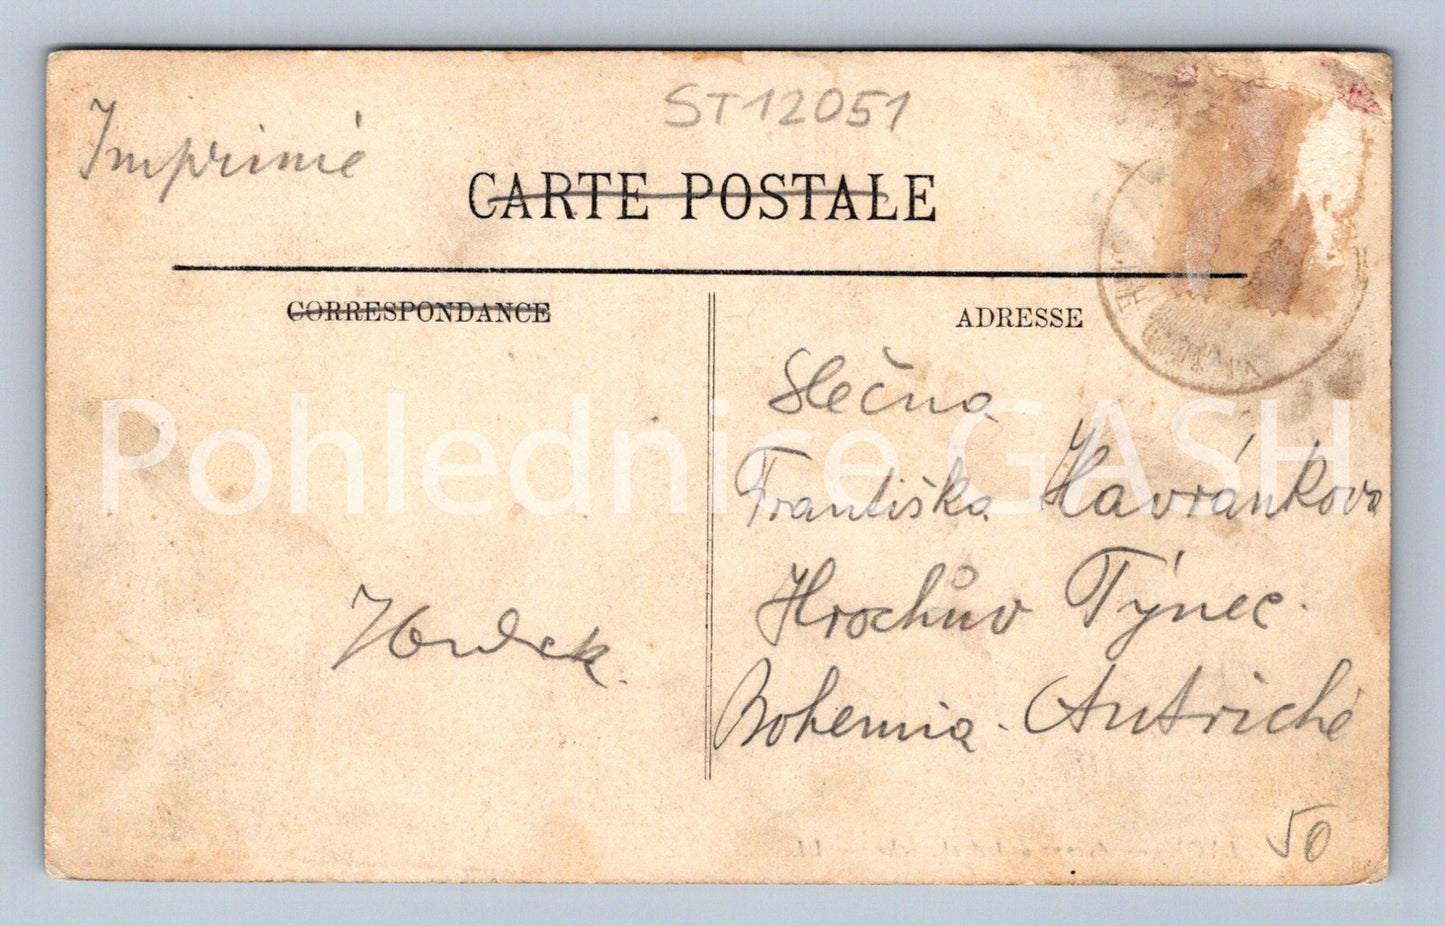 ST12051
Imprimé
CARTE POSTALE
CORRESPONDANCE
ADRESSE
Slečna
Františka Havránkova
Hrochův Týnec.
Bohemia. Autriché
50
Pohlednice GASH